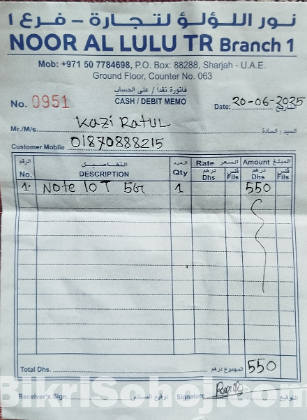 نور اللؤلؤ لتجارة - فرع ١
NOOR AL LULU TR Branch 1
Mob: +971 50 7784698, P.O. Box: 88288, Sharjah - U.A.E.
Ground Floor, Counter No. 063
فاتورة نقداً / على الحساب
CASH / DEBIT MEMO
No. 0951
Date: 20-06-2025 التاريخ
Mr./M/s. Kazi Ratul السيد / السادة
Customer Mobile 01870838215
الرقم التفاصيل العدد Rate السعر Amount المبلغ
No. DESCRIPTION Qty درهم Dhs فلس Fils درهم Dhs فلس Fils
1. Note 10 T 5G 1 550
Total Dhs. المجموع درهم 550
Receiver's Sign. Signature التوقيع
BikriSohoj.com